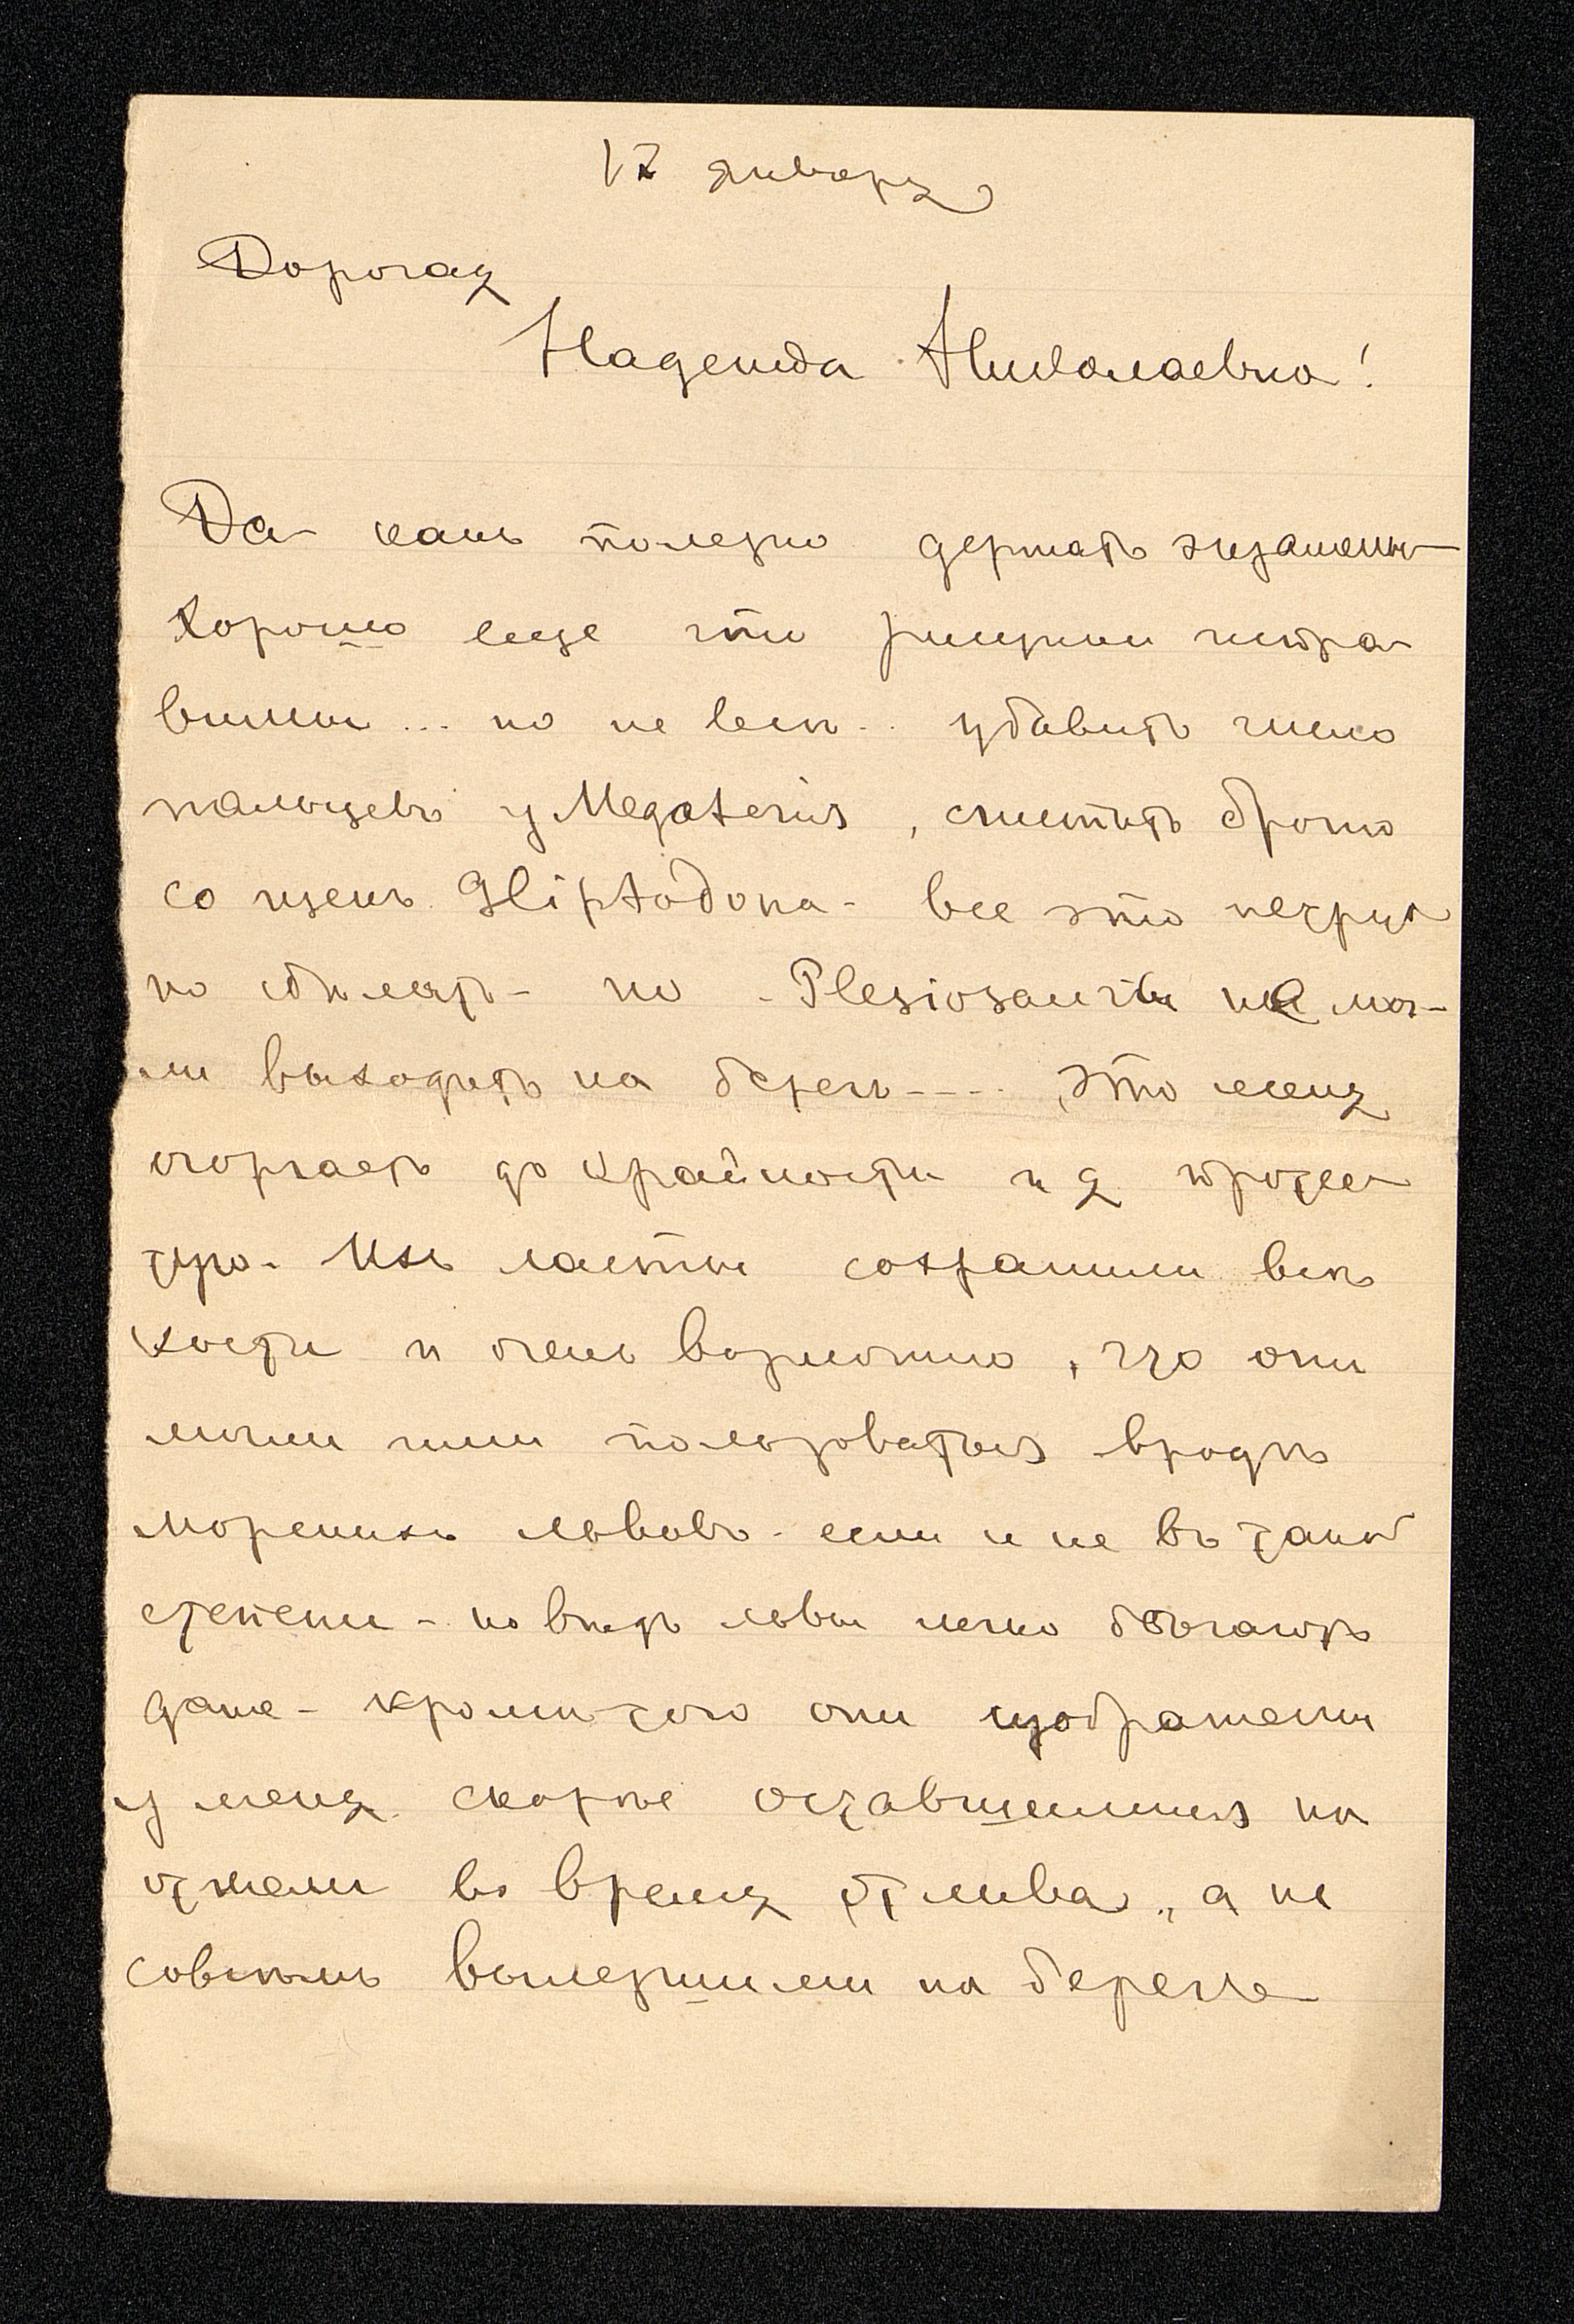 17 января
Дорогая
Надежда Николаевна!
Да какъ полезно держать экзамены
Хорошо еще что рисунки испра-
вимы... но не всѣ.. убавить число
пальцевъ у Megateris, счистить броню
со щекъ Gliptodona - все это нетруд
но сдѣлать - но Plesiosaurы не мог-
ли выходить на берегъ---- Это меня
огорчаетъ до крайности и я протес-
тую. Ихъ ласты сохранили всѣ
кости и очень вероятно, что они
могли ими пользоваться вродѣ
морскихъ львовъ - если и не въ такой
степени - но вѣдь львы легко бѣгаютъ
даже - кромѣ того они изображены
у меня скорѣе оставшимися на
отмели во время отлива, а не
совсѣмъ вылезшими на берегъ